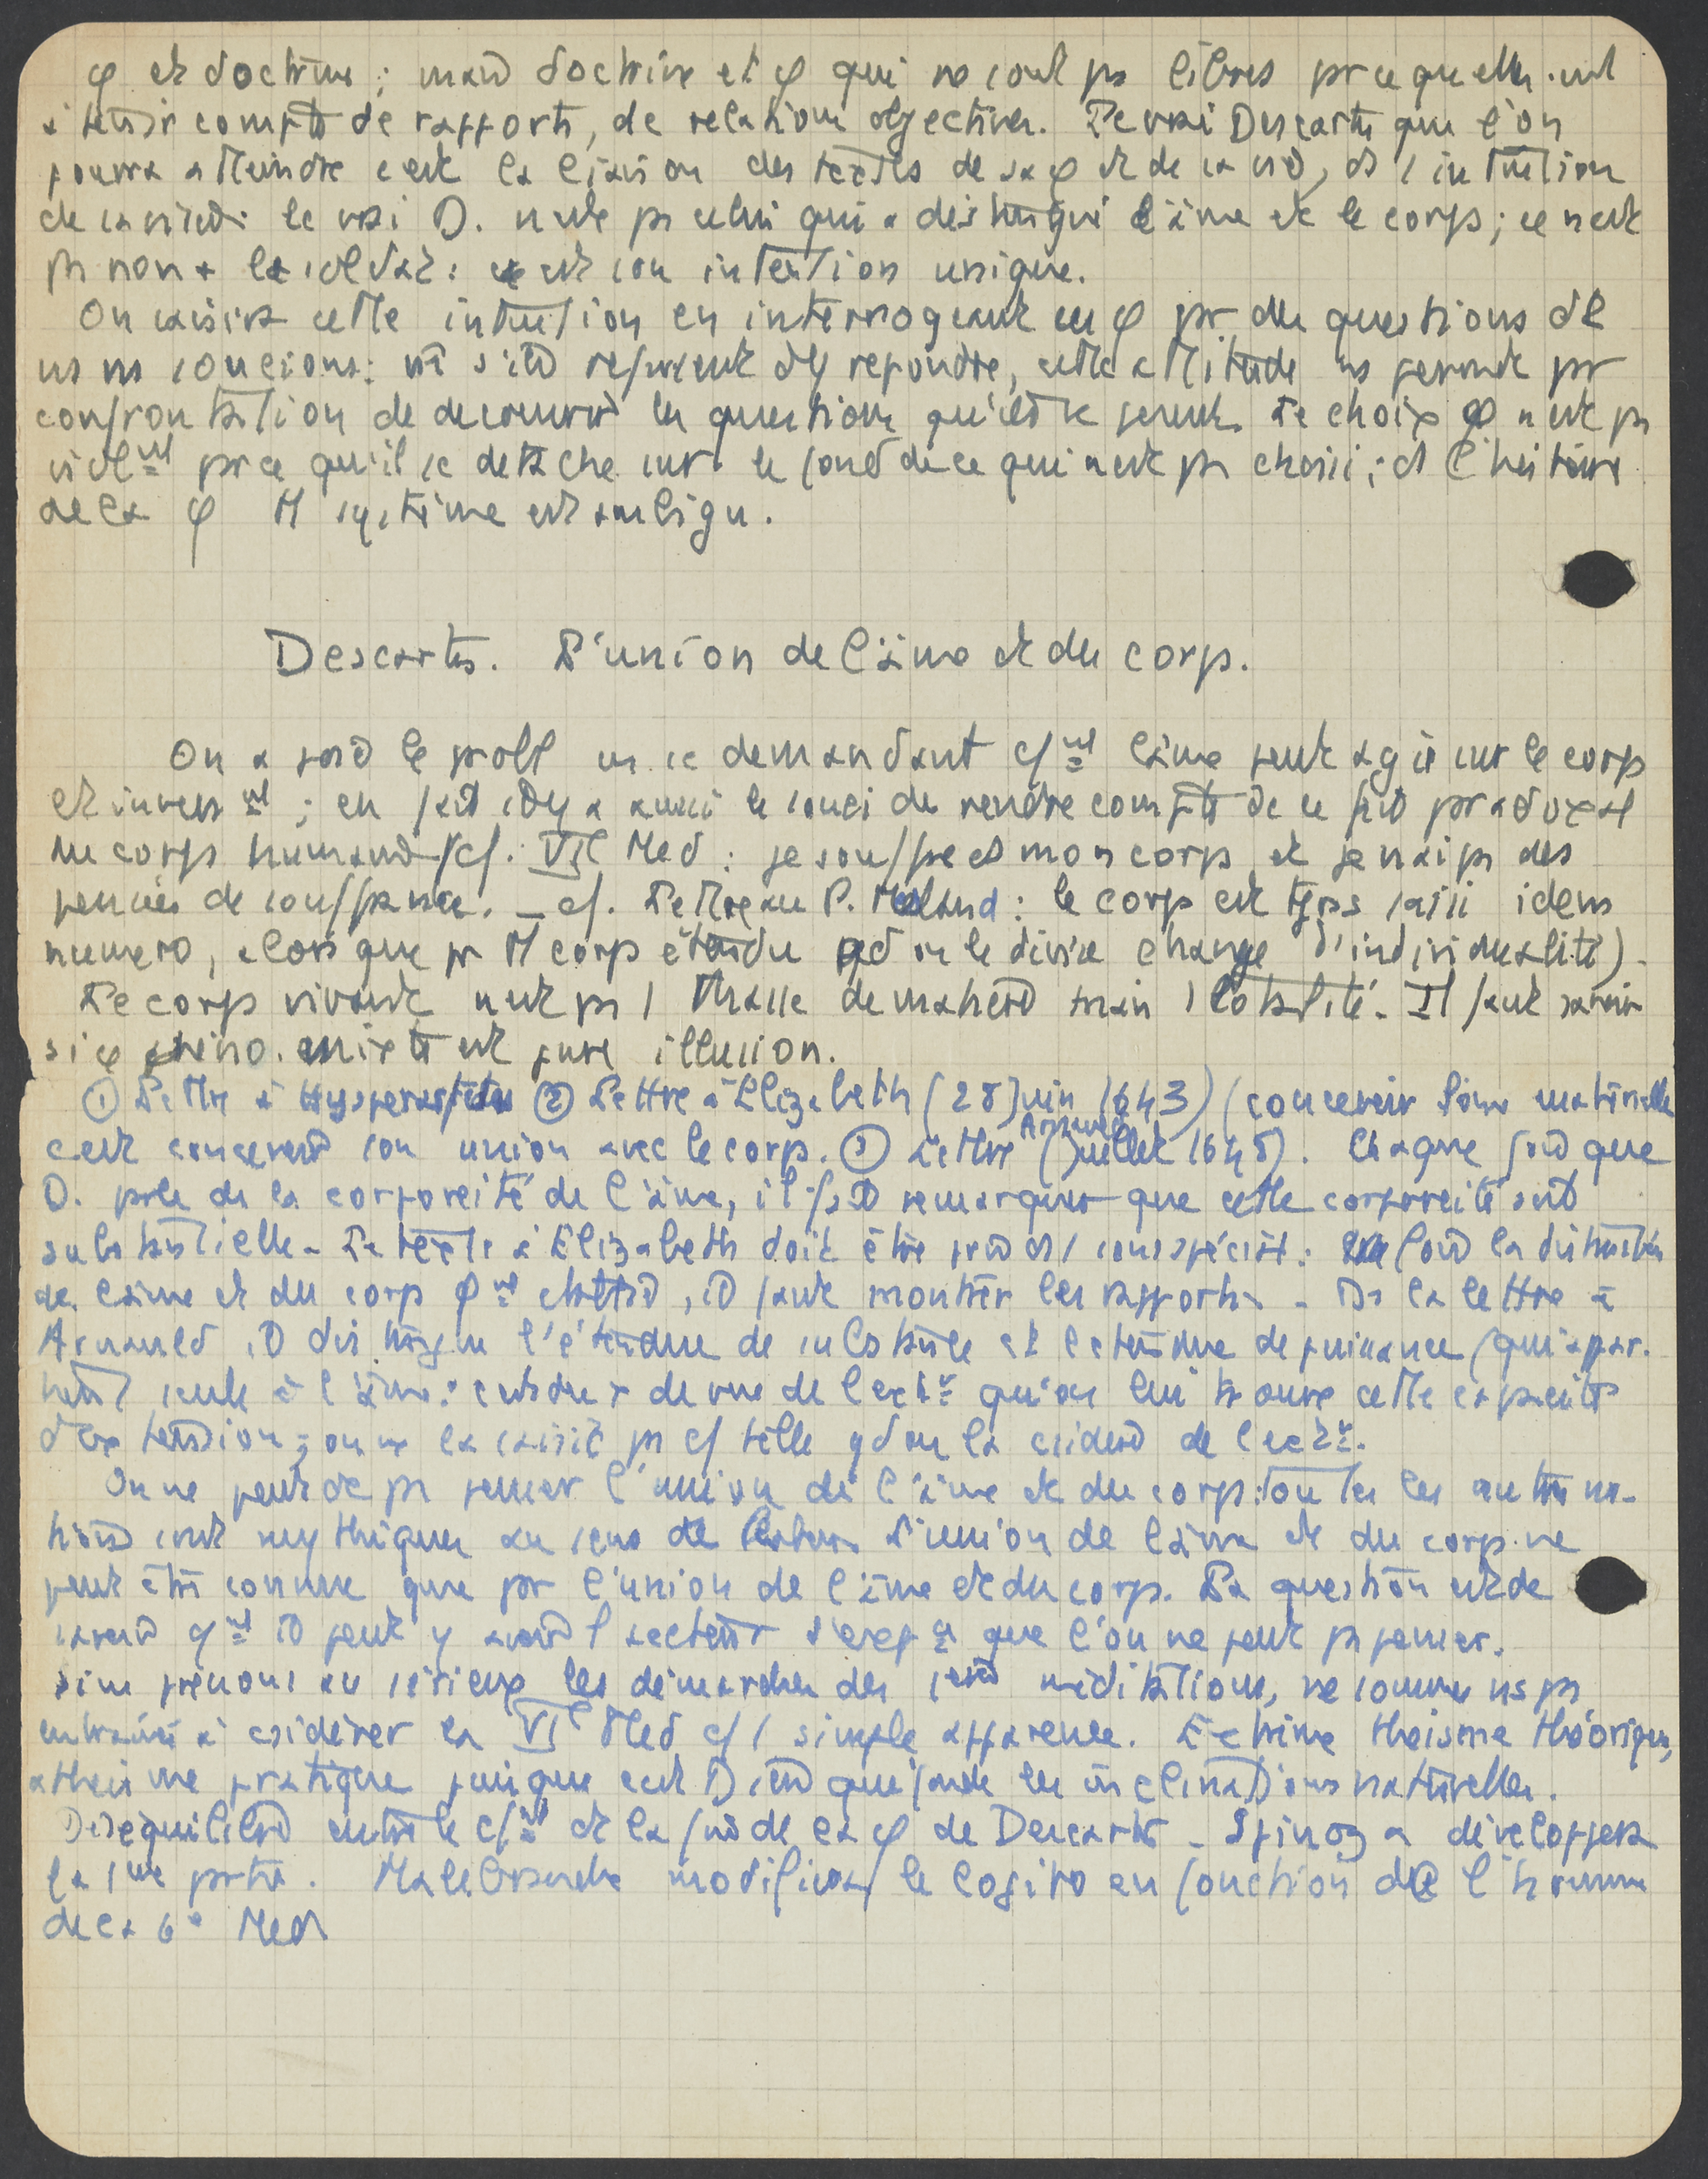 φ et doctrine ; mais doctrine et φ qui ne sont ps libres prce qu'elles ont
à tenir compte de rapports, de relations objectives. Le vrai Descartes que l'on
pourra atteindre c'est la liaison des textes de sa φ et de sa vie, ds l'intuition
de sa vie : le vrai D. n'est ps celui qui a distingué l'âme et le corps ; ce n'est
ps non + le soldat : c'est son intention unique.
On saisira cette intuition en interrogeant sa φ pr des questions dt
ns ns soucions : m s'il refusent d'y répondre, cette attitude ns permet pr
confrontation de découvrir les questions qu'il se posent. Le choix φ n'est ps
isolé prce qu'il se détache sur le fond de ce qui n'est ps choisi ; ds l'histoire
de la φ tt système est ambigu.
Descartes. L'union de l'âme et du corps.
On a posé le probl en se demandant cnt l'âme peut agir sur le corps
et inverst ; en fait il y a aussi le souci de rendre compte de ce fait pradoxal
du corps humain (cf. VIe Med : je souffre ds mon corps et je n'ai ps des
pensées de souffrance. _ cf. Lettre au P. Mesland : le corps est tjrs saisi idem
numero, alors que pr tt corps étendu qd on le divise change d'individualité).
Le corps vivant n'est ps 1 masse de matière mais 1 totalité. Il faut savoir
si ce phéno. mixte est pure illusion.
① Lettre à Hyperaspistes ② Lettre à Elizabeth (28 juin 1643) (concevoir l'âme matérielle
c'est concevoir son union avec le corps. ③ Lettre Arnauld (Juillet 1648). Chaque fois que
D. parle de la corporéité de l'âme, il fait remarquer que cette corporéité est
substantielle. Le texte à Elizabeth doit être pris ds 1 sens spécial : la distinction
de l'âme et du corps , il faut montrer les rapports. _ Ds la lettre à
Arnauld, il distingue l'étendue de substance et l'étendue de puissance (qui appar-
tient seule à l'âme : c'est du pt de vue de l'extr qu'on lui trouve cette capacité
d'extension ; on ne la saisit ps cf telle qd on la csidère de l'extr.
On ne peut dc ps penser l'union de l'âme et du corps : toutes les autres no-
tions sont mythiques au sens de Platon. L'union de l'âme et du corps ne
peut être connue que pr l'union de l'âme et du corps. La question est de
savoir cnt il peut y avoir 1 secteur d'exp que l'on ne peut ps penser.
si ns prenons au sérieux les démarches des 1ères méditations, ne sommes ns ps
entraînés à csidérer la VIe Med cf 1 simple apparence. Extrême théisme théorique,
athéisme pratique puisque c'est Dieu qui fonde les inclinations naturelles.
Déséquilibre entre le cnt et la fin de la φ de Descartes _ Spinoza développera
la 1ère partie. Malebranche modifiera le Cogito en fonction de l'homme
de la 6e Med